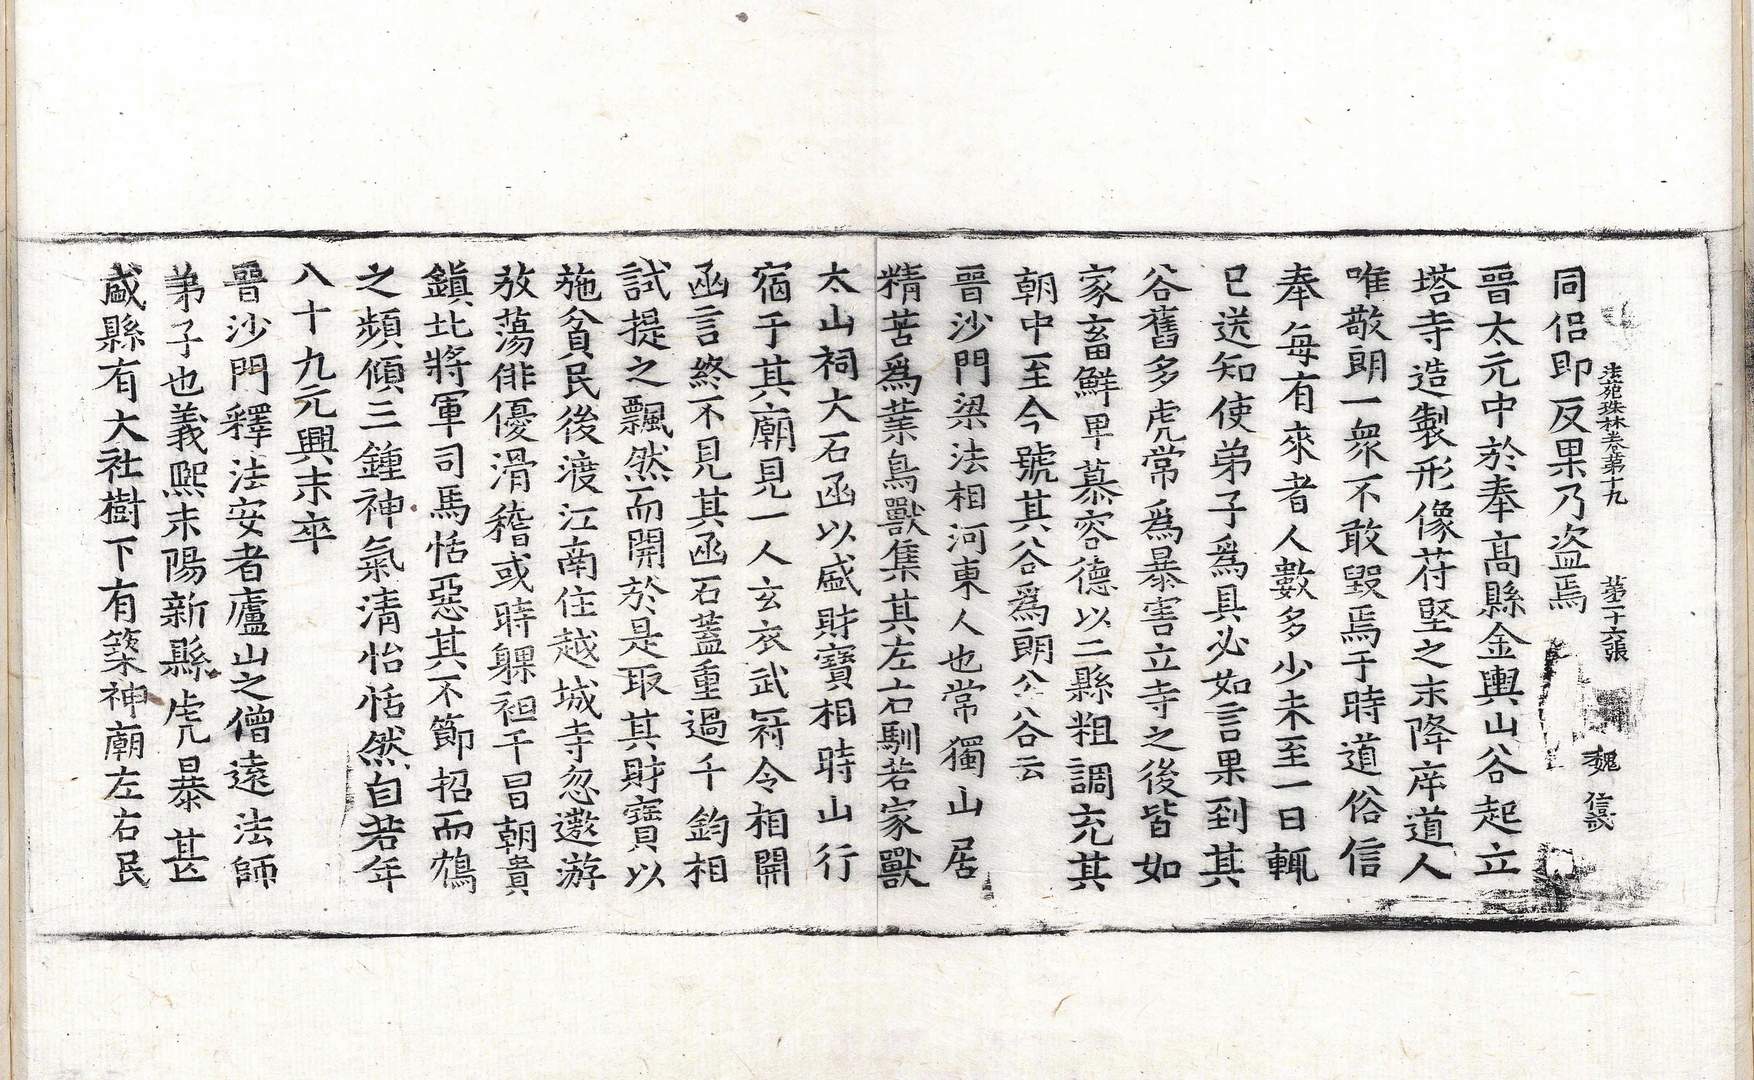 法苑珠林卷第十九 第二十六張 魏 信義
同侣即反果乃盗焉
晉太元中於奉高縣金輿山谷起立
塔寺造製形像苻堅之末降庠道人
唯敬朗一衆不敢毀焉于時道俗信
奉每有來者人數多少未至一日輒
已送知使弟子爲具必如言果到其
谷舊多虎常爲暴害立寺之後皆如
家畜鮮卑慕容德以二縣租調充其
朝中至今號其谷爲朗公谷云
晉沙門梁法相河東人也常獨山居
精苦爲業鳥獸集其左右馴若家獸
太山祠大石函以盛財寶相時山行
宿于其廟見一人玄衣武冠令相開
函言終不見其函石蓋重過千鈞相
試提之飄然而開於是取其財寶以
施貧民後渡江南住越城寺忽遨游
放蕩俳優滑稽或時躶袒干冒朝貴
鎮北將軍司馬恬惡其不節招而鴆
之頻傾三鍾神氣清怡恬然自若年
八十九元興末卒
晉沙門釋法安者廬山之僧遠法師
弟子也義熙末陽新縣虎暴甚
盛縣有大社樹下有築神廟左右民